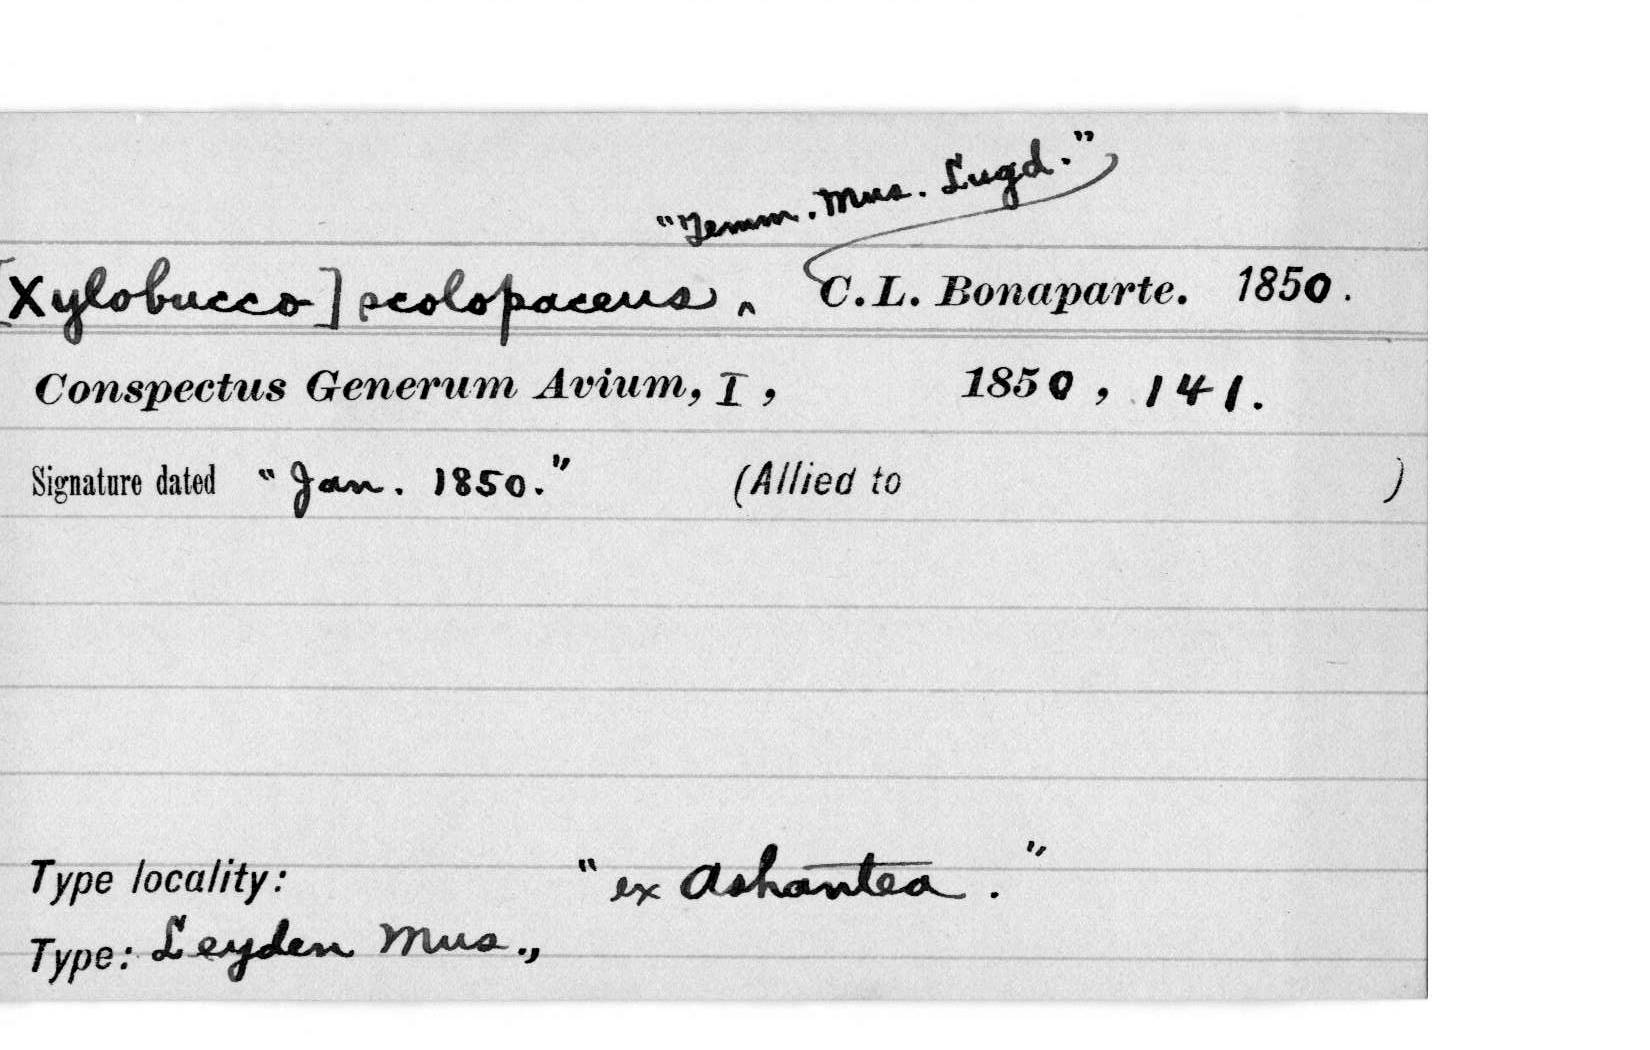 "Temm. Mus. Lugd."
[Xylobucco] scolopaceus, C.L. Bonaparte. 1850.
Conspectus Generum Avium, I, 1850, 141.
Signature dated "Jan. 1850." (Allied to )
Type locality: "ex Ashantea."
Type: Leyden Mus.,